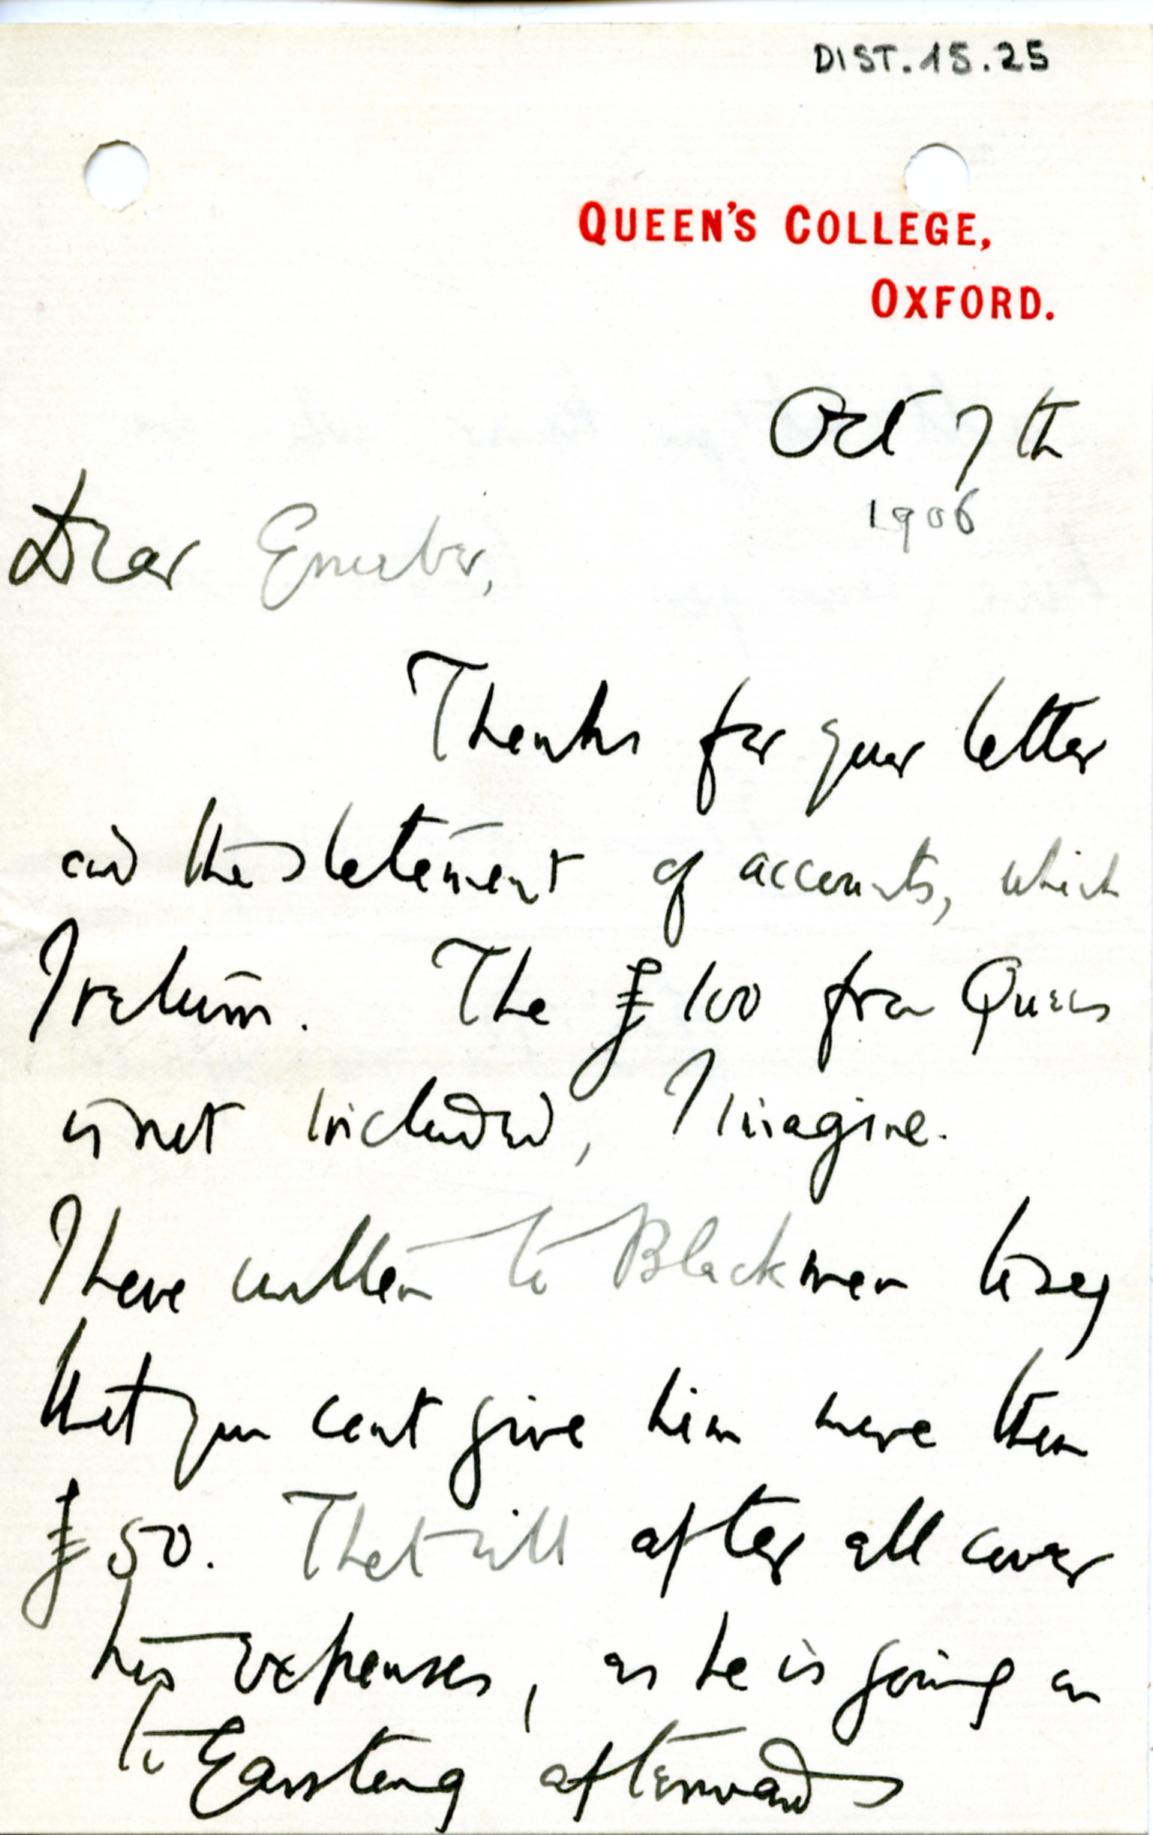 DIST.15.25
QUEEN'S COLLEGE,
OXFORD.
Oct 7th
1906
Dear
Thanks for your letter
and the statement of accounts, which
I return. The £100 from Queens
is not included, I imagine.
I have written to Blackman to say
that you cant give him more than
£50. That will after all cover
his expenses, as he is going on
to Garstang afterwards